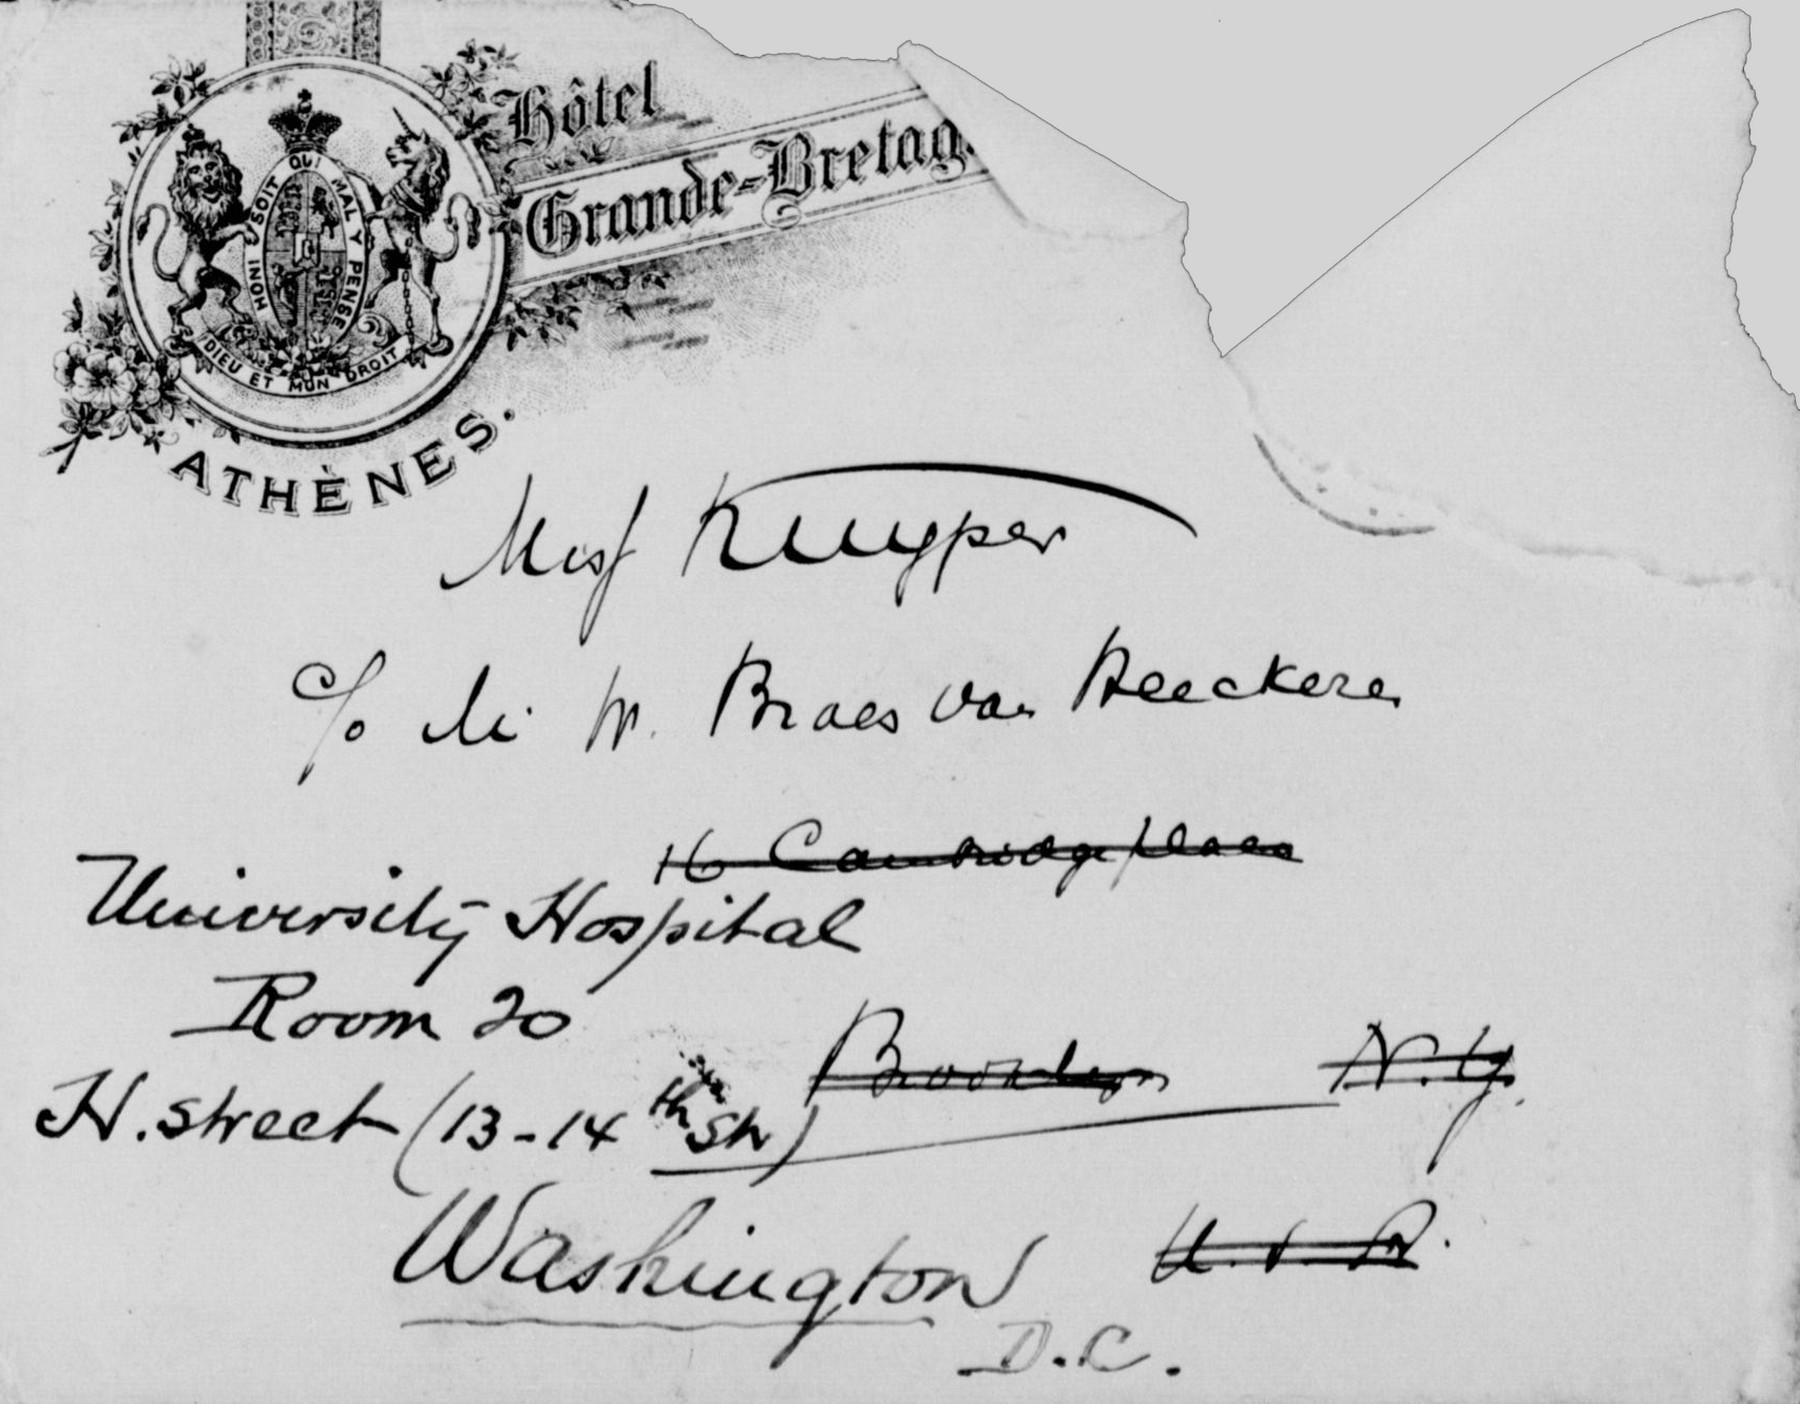 Hôtel
Grande-Bretag
HONI SOIT QUI MAL Y PENSE
DIEU ET MON DROIT
ATHÈNES.
Miss Kuyper
c/o Mr W. Broes van Heeckeren
16 Cambridge place
University Hospital
Room 20
Brooklyn N.Y.
H. street (13-14th Str)
Washington
U.S.A.
D.C.